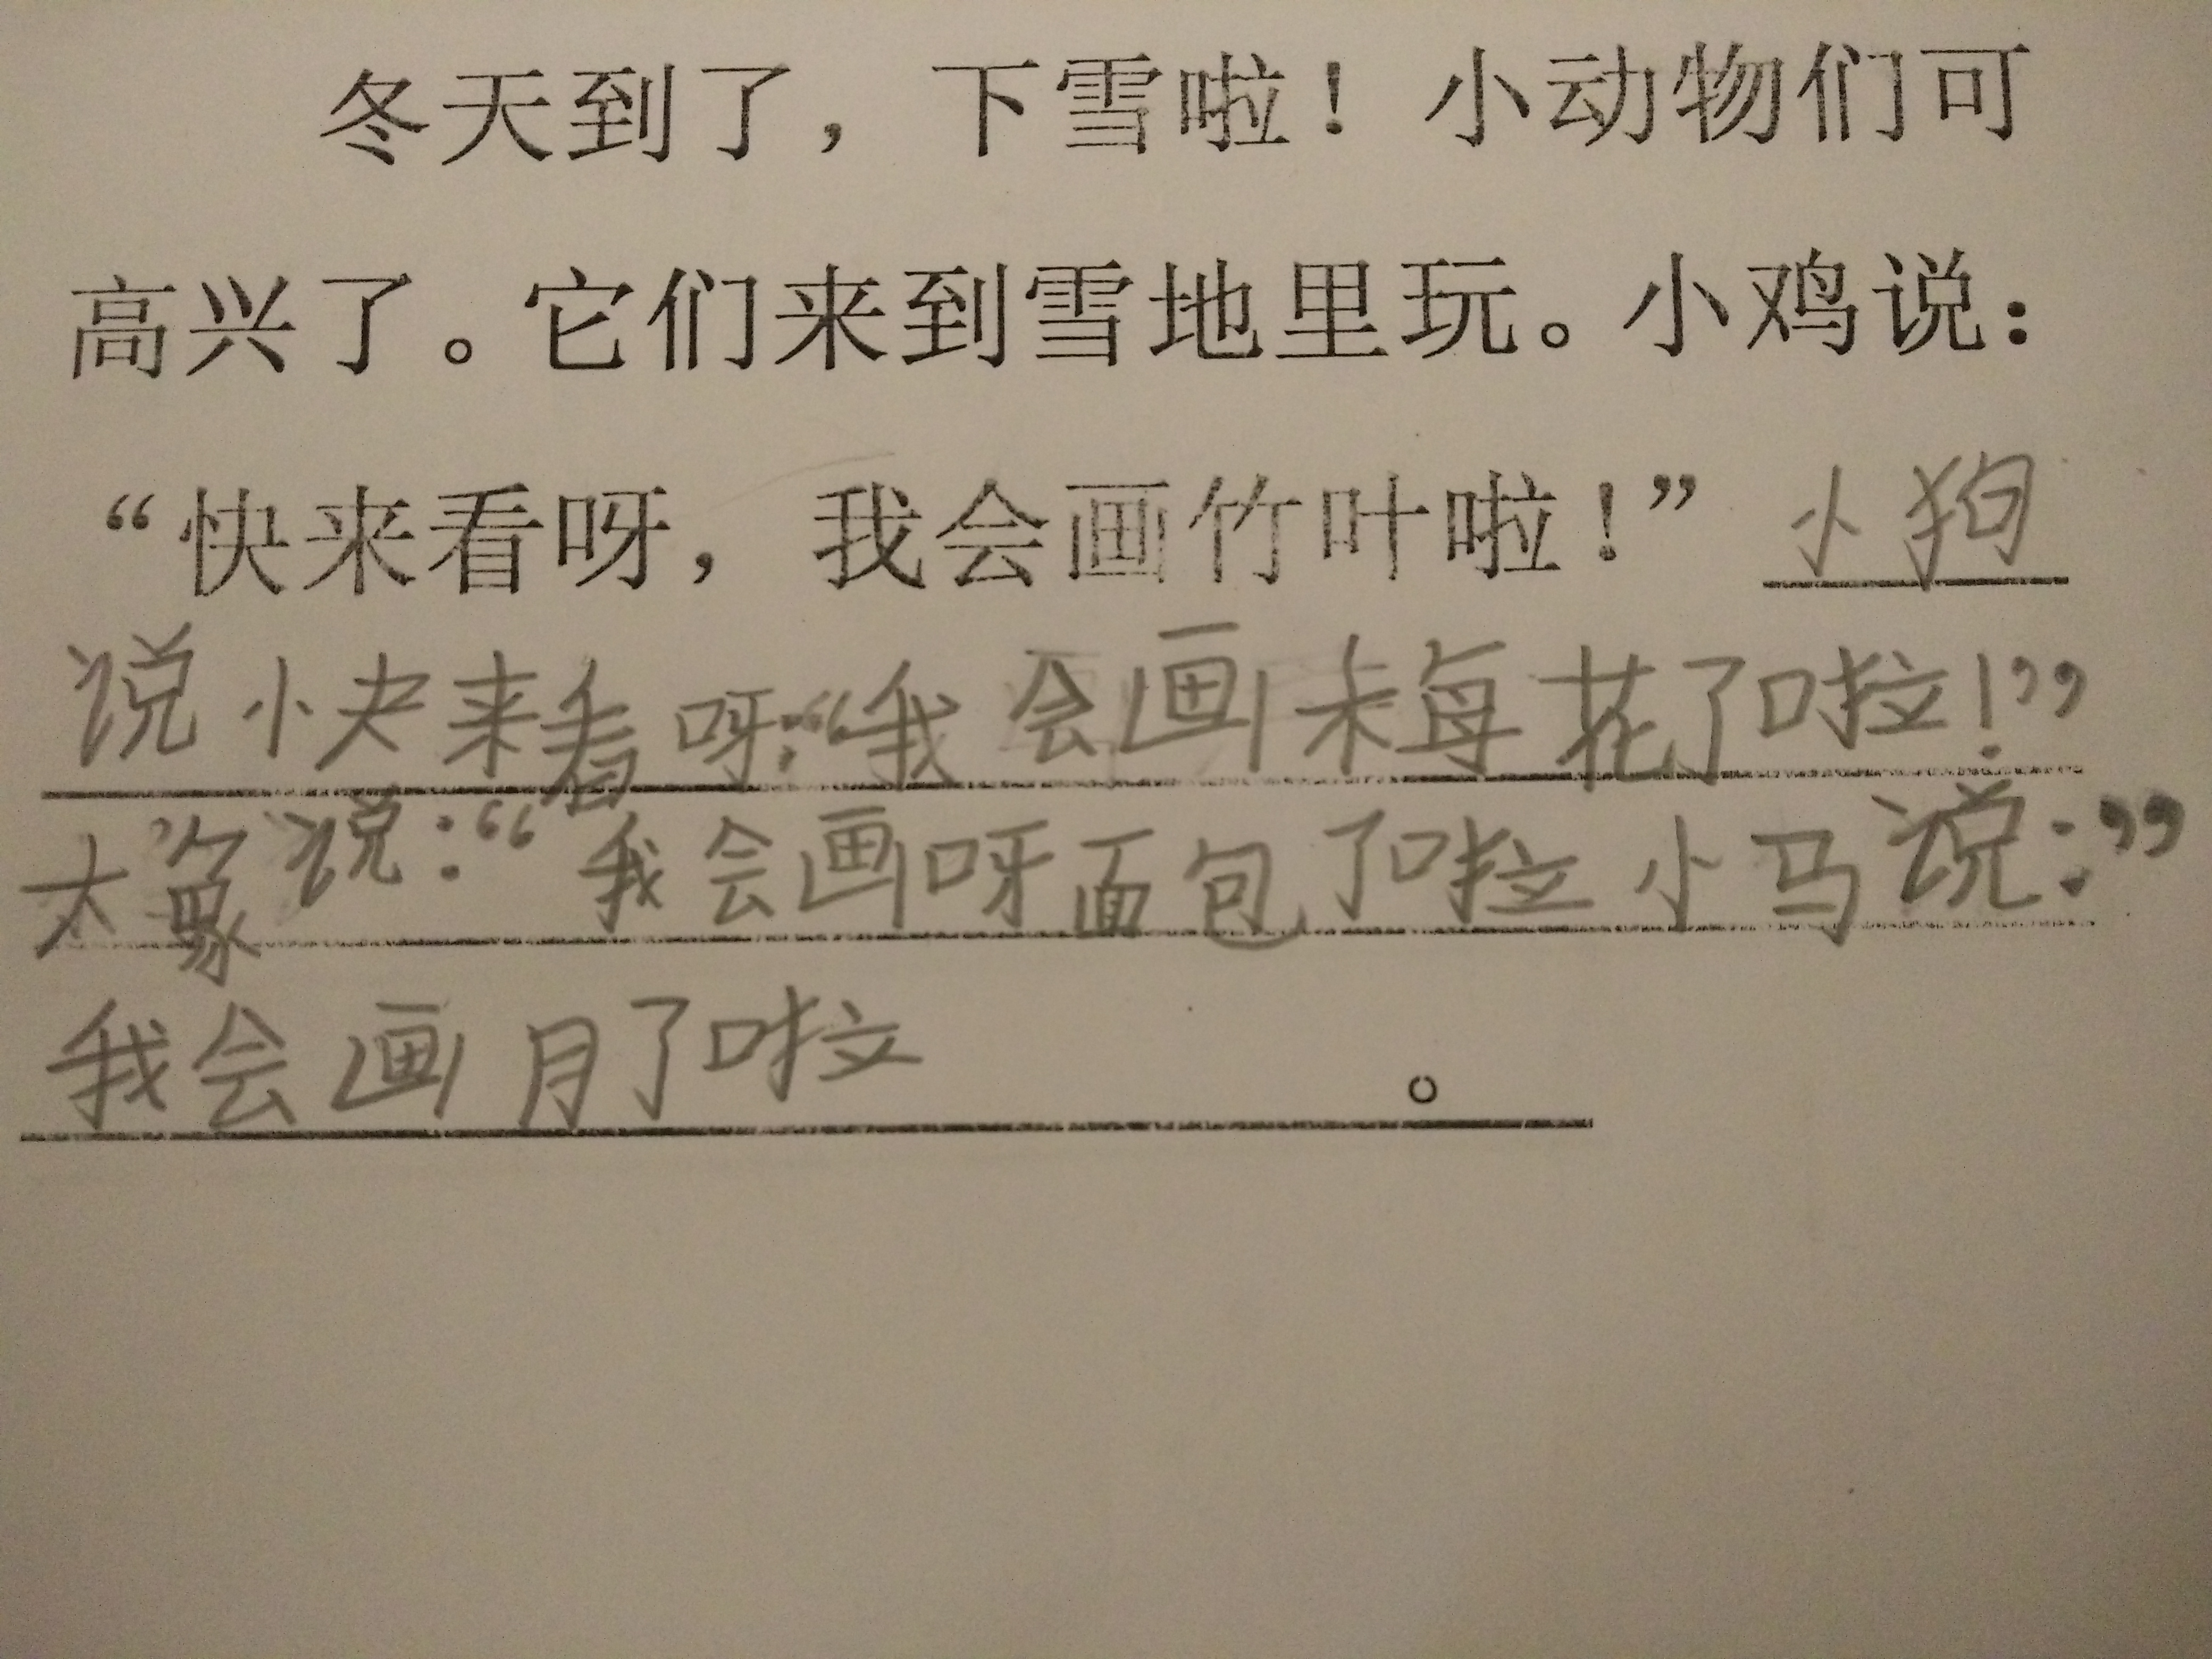 冬天到了，下雪啦！小动物们可
高兴了。它们来到雪地里玩。小鸡说：
“快来看呀，我会画竹叶啦！”小狗
说快来看呀：“我会画梅花了啦！”
大象说：“我会画呀面包了啦小马说：”
我会画月了啦。